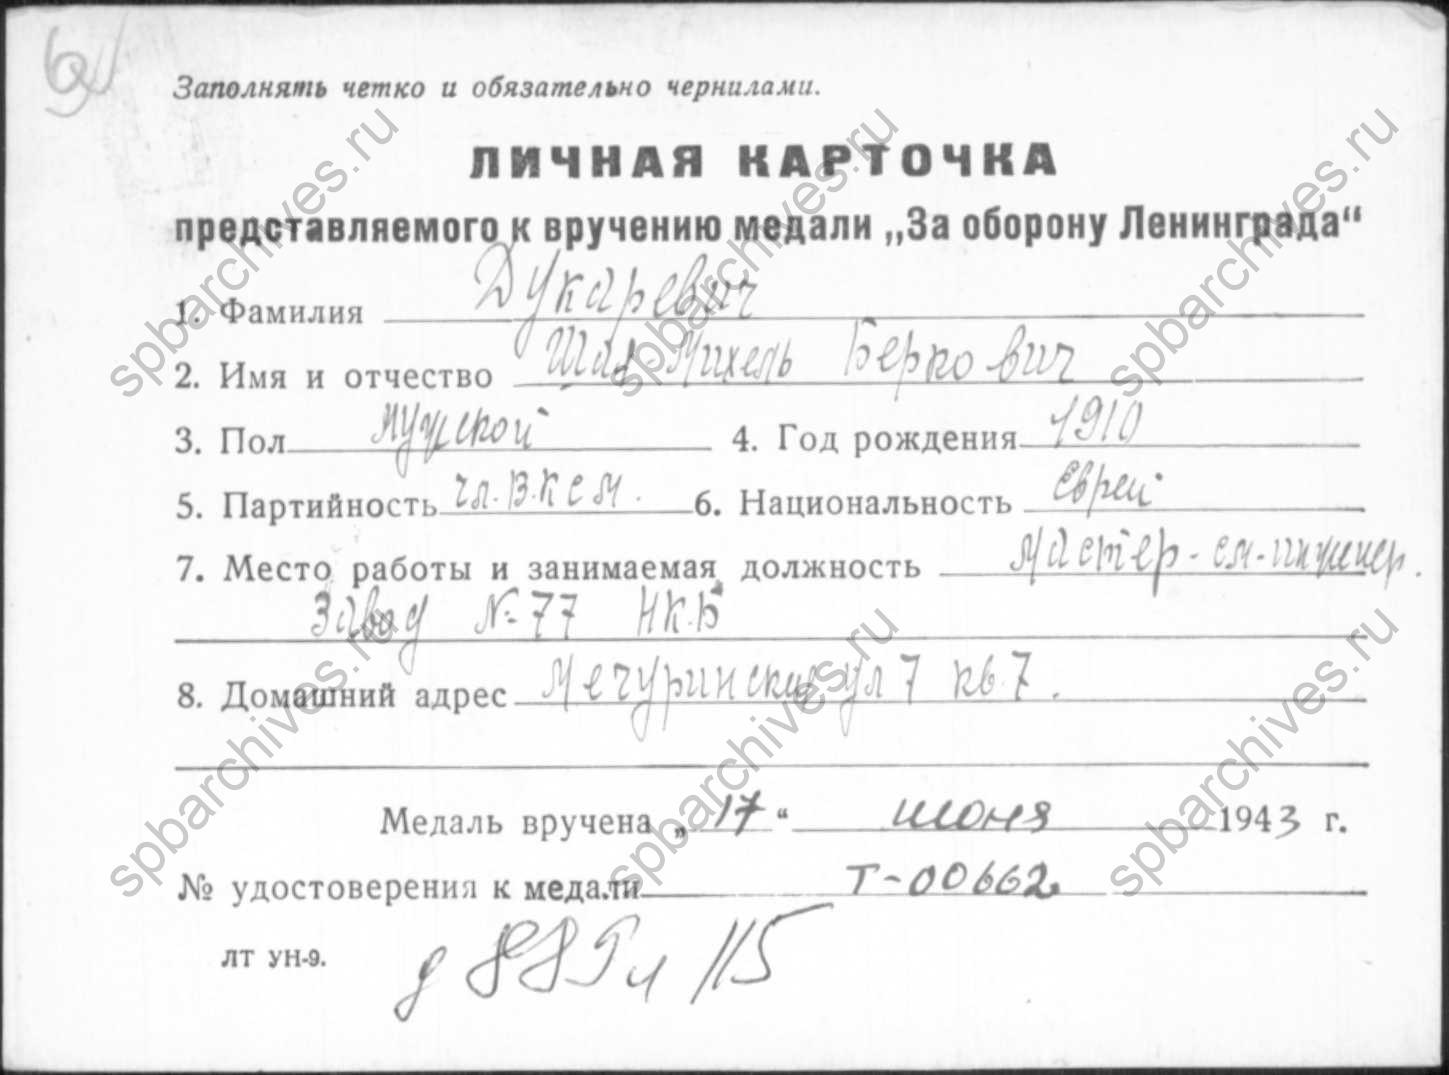 Заполнять четко и обязательно чернилами.
ЛИЧНАЯ КАРТОЧКА
представляемого к вручению медали „За оборону Ленинграда“
1. Фамилия Дукаревич
2. Имя и отчество Шая-Михель Беркович
3. Пол мужской 4. Год рождения 1910
5. Партийность чл. В.К С М. 6. Национальность Еврей
7. Место работы и занимаемая должность Мастер-см-инженер.
Завод № 77 НКБ
8. Домашний адрес Мечуринская ул 7 кв. 7.
Медаль вручена „17“ июня 1943 г.
№ удостоверения к медали Т-00662
ЛТ УН-9.
spbarchives.ru
spbarchives.ru
spbarchives.ru
spbarchives.ru
spbarchives.ru
spbarchives.ru